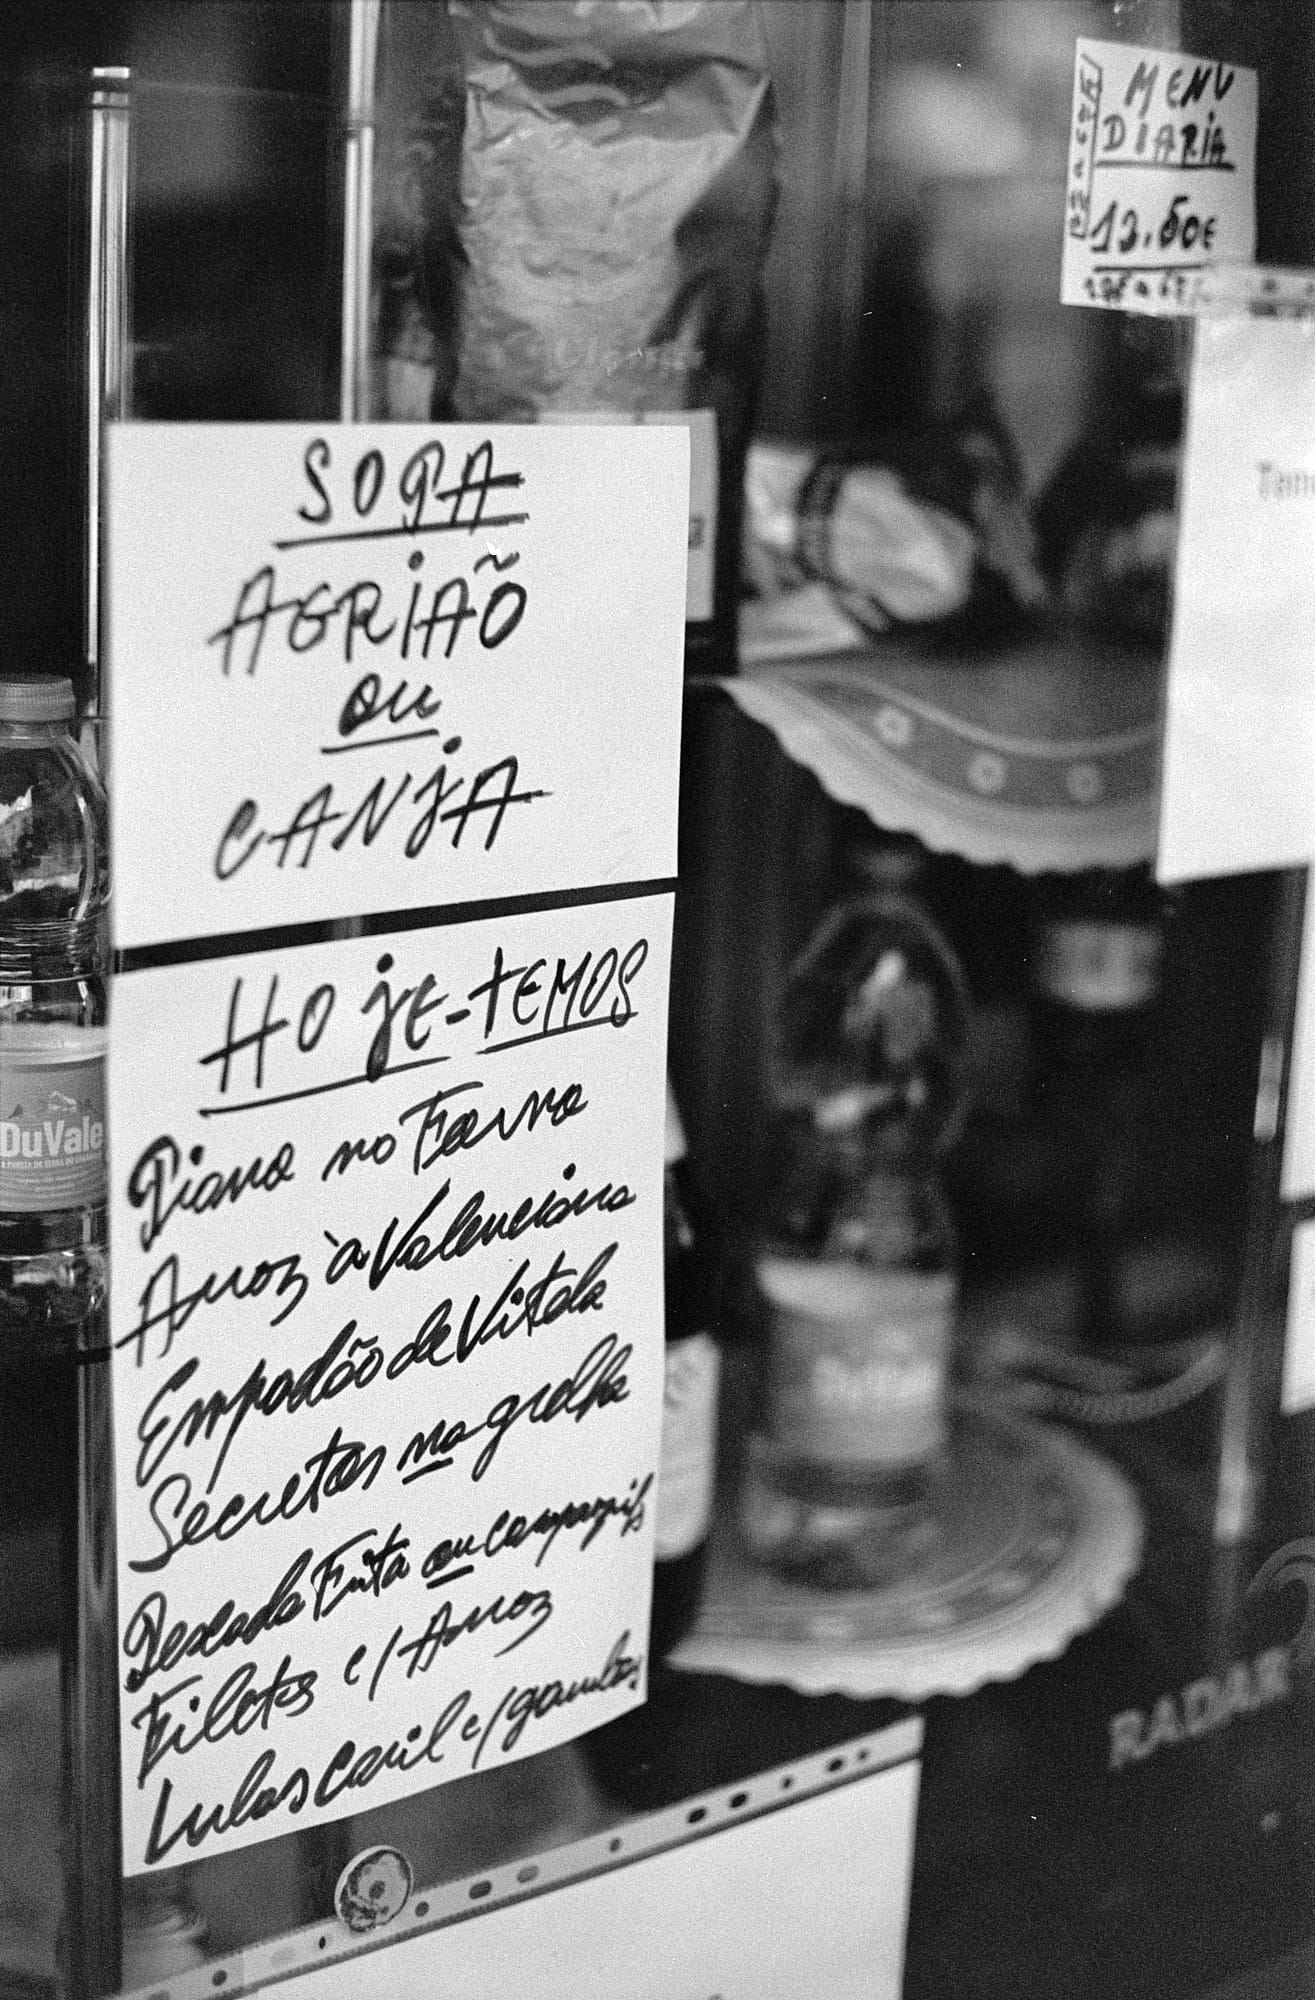 MENU
DIARIA
12.50€
2ª a 6ª
SOPA
AGRIÃO
ou
CANJA
HOJE-TEMOS
Piano no Forno
Arroz à Valenciana
Empadão de Vitela
Secretos na grelha
Pescada Frita ou
Filetes c/Arroz
Lulas Caril c/gambas
DuVale
RADAR